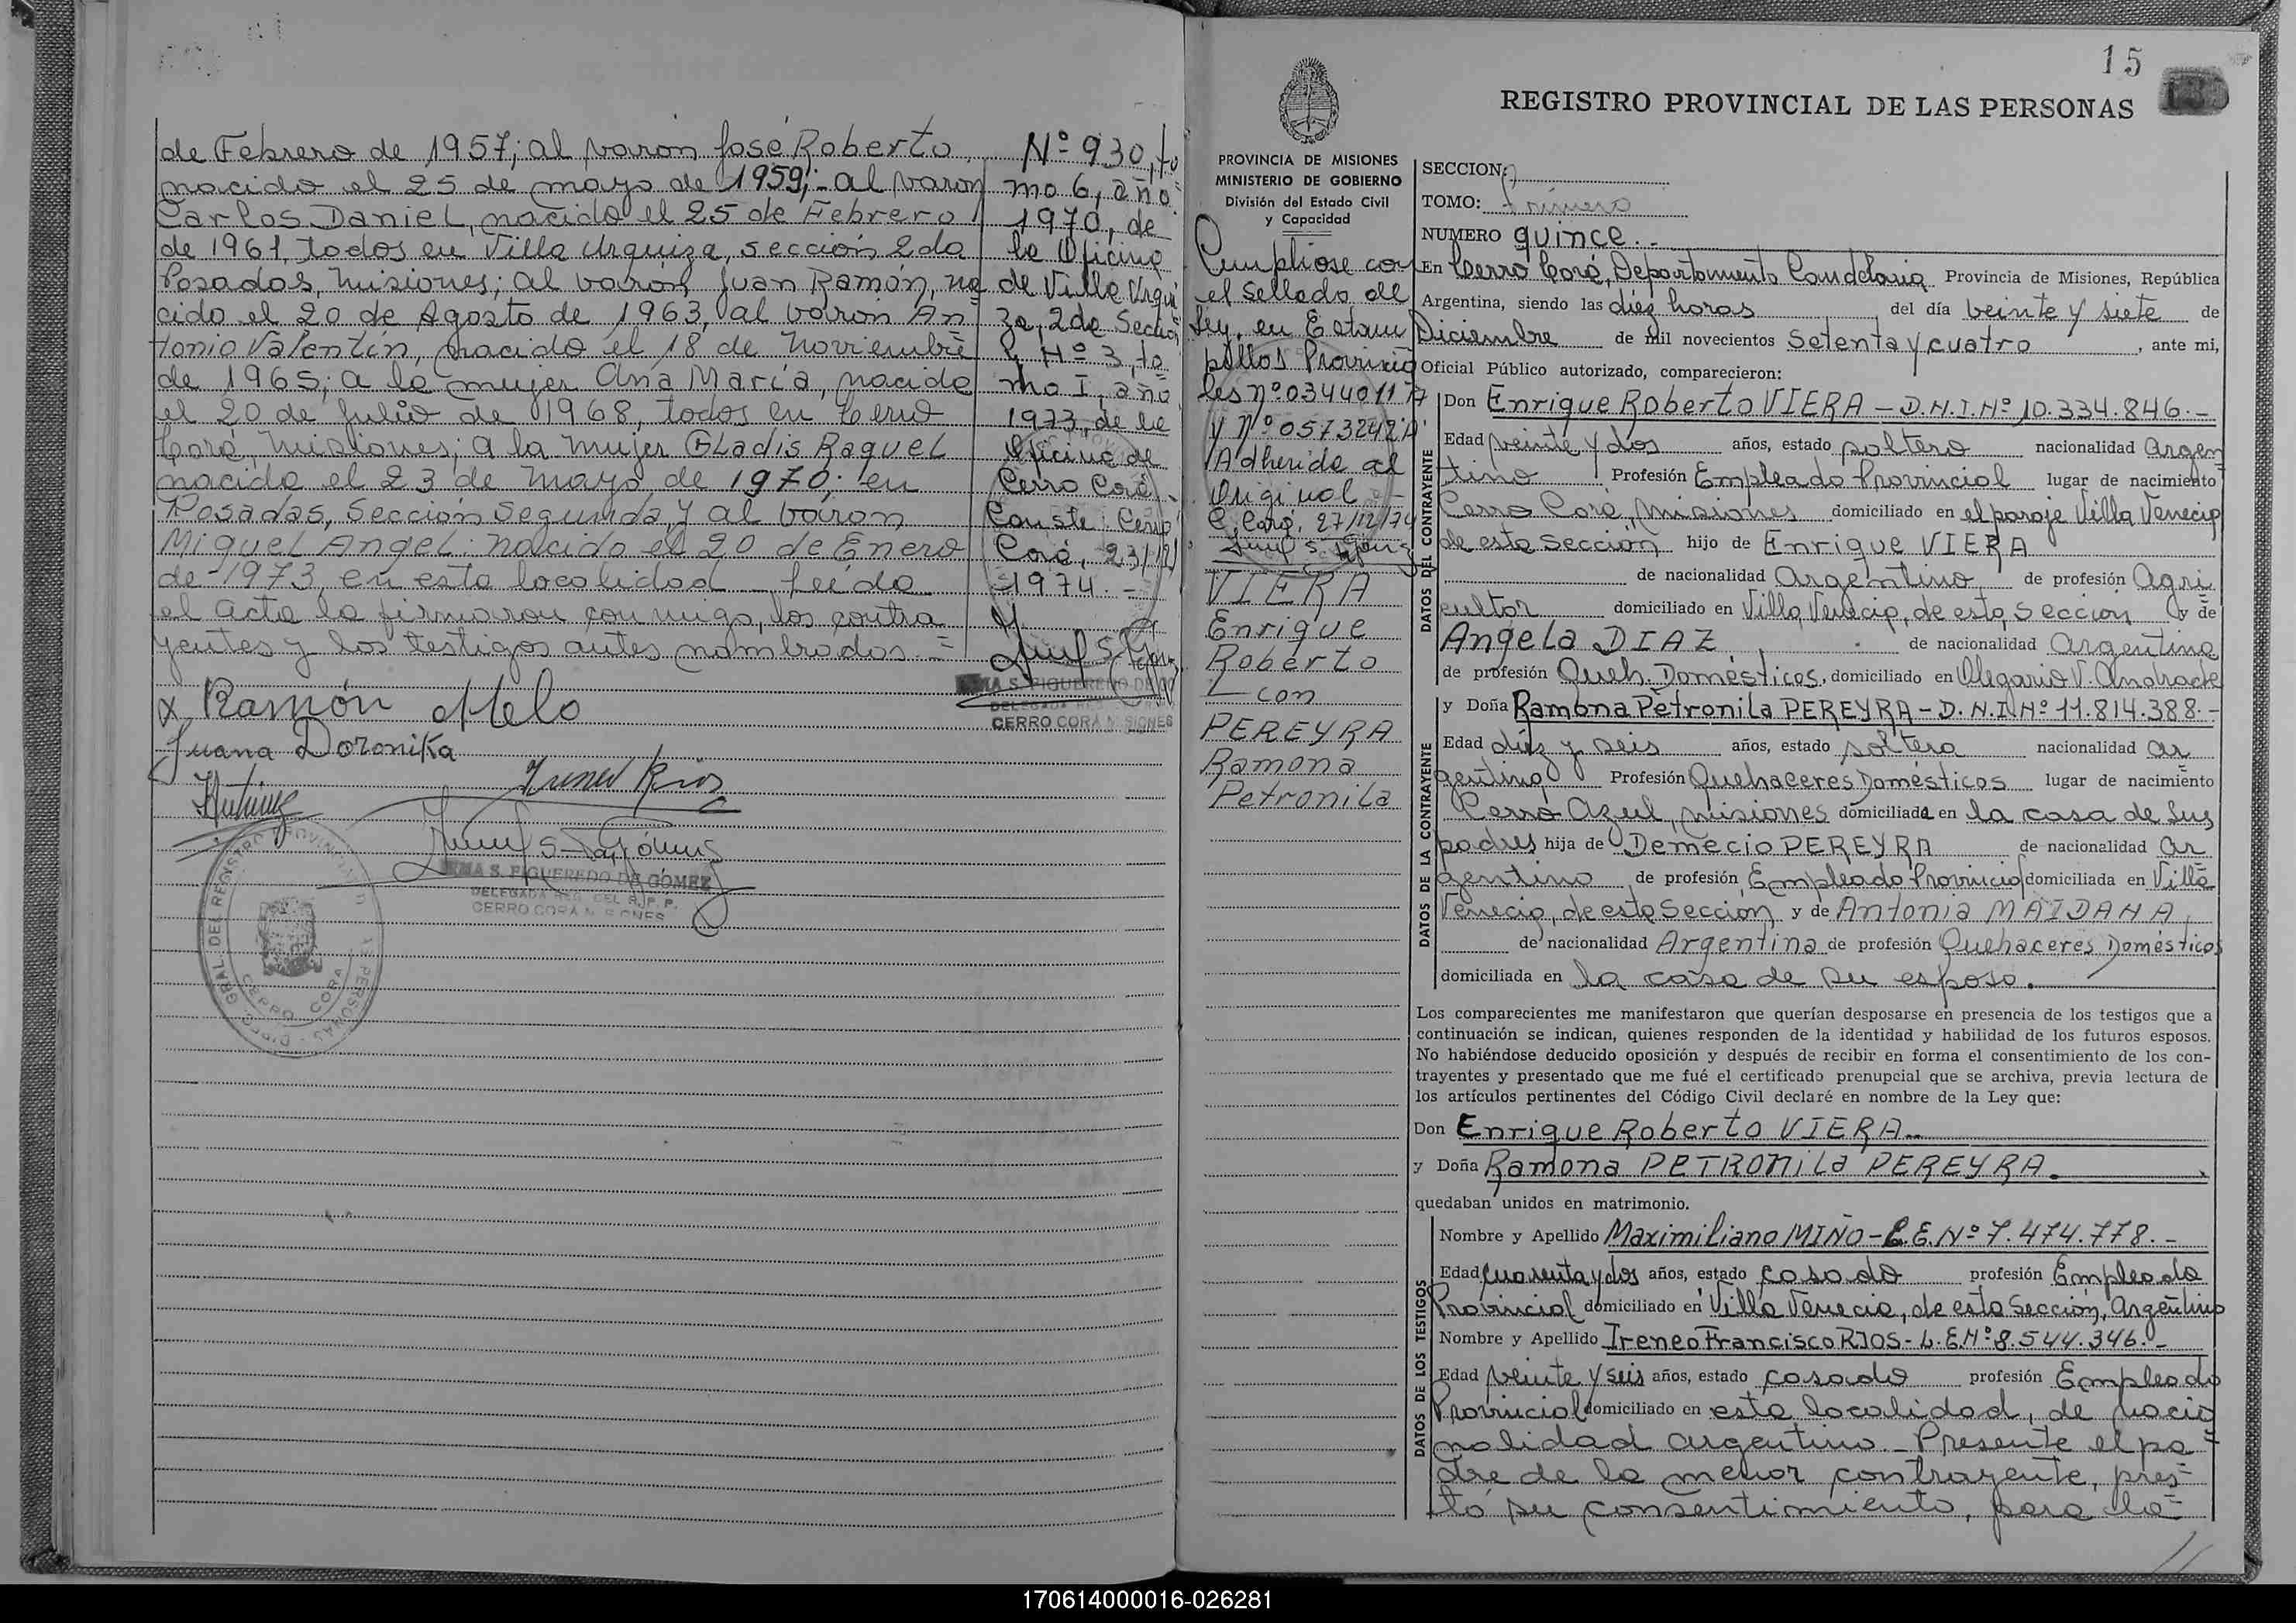 de Febrero de 1957; al varón José Roberto,
nacido el 25 de mayo de 1959; al varón
Carlos Daniel, nacido el 25 de Febrero
de 1961, todos en Villa Urquiza, sección 2da
Posadas, Misiones; al varón Juan Ramón, na
cido el 20 de Agosto de 1963, al varón An=
tonio Valentín, nacido el 18 de Noviembre
de 1965; a la mujer Ana María, nacida
el 20 de Julio de 1968, todos en Cerro
Corá, Misiones; a la mujer Gladis Raquel
nacida el 23 de Mayo de 1970; en
Posadas, Sección Segunda, y al varón
Miguel Angel: nacido el 20 de Enero
de 1973, en esta localidad - Leída
el acta la firmaron conmigo, los contra
yentes y los testigos antes nombrados. =
x Ramón Melo
Juana Doronika
Ireneo Rios
IRMA S. FIGUEREDO DE GOMEZ
DELEGADA REG. DEL R.P. P.
CERRO CORA MISIONES
Nº 930, to
mo 6, año
1970, de
la Oficina
de Villa Urqui
za, 2da Sección
y Nº 3, to=
mo I, año
1973, de la
Oficina de
Cerro Corá.
Conste. Cerro
Corá, 23/12/
1974. -
IRMA S. FIGUEREDO DE GO
DELEGADA REG
CERRO CORA MISIONES
15
REGISTRO PROVINCIAL DE LAS PERSONAS
PROVINCIA DE MISIONES
MINISTERIO DE GOBIERNO
División del Estado Civil
y Capacidad
Cumpliose con
el sellado de
Ley, en Estam
pillos Provincia
les nº 0344011 A
y Nº 0573242 A
Adherida al
Original -
C. Corá, 27/12/74
VIERA
Enrique
Roberto
con
PEREYRA
Ramona
Petronila
SECCION:
TOMO: Primero
NUMERO quince. -
En Cerro Corá, Departamento Candelaria Provincia de Misiones, República
Argentina, siendo las diez horas del día veinte y siete de
Diciembre de mil novecientos Setenta y cuatro, ante mi,
Oficial Público autorizado, comparecieron:
DATOS DEL CONTRAYENTE
Don Enrique Roberto VIERA - D.N.I. Nº 10.334.846. -
Edad veinte y dos años, estado soltero nacionalidad Argen
tino Profesión Empleado Provincial lugar de nacimiento
Cerro Corá, Misiones domiciliado en el paraje Villa Venecia
de esta Sección hijo de Enrique VIERA
de nacionalidad Argentino de profesión Agri
cultor domiciliado en Villa Venecia, de esta, sección y de
Angela DIAZ de nacionalidad Argentina
de profesión Queh. Domésticos, domiciliado en Olegario V. Andrade
DATOS DE LA CONTRAYENTE
y Doña Ramona Petronila PEREYRA - D.N.I. Nº 11.814.388. -
Edad diéz y seis años, estado soltera nacionalidad ar
gentina Profesión Quehaceres Domésticos lugar de nacimiento
Cerro Azul, Misiones domiciliada en la casa de sus
padres hija de Demecio PEREYRA de nacionalidad ar
gentino de profesión Empleado Provincial domiciliada en Villa
Venecia, de esta Sección y de Antonia MAIDANA,
de nacionalidad Argentina de profesión Quehaceres Domésticos
domiciliada en la casa de su esposo.
Los comparecientes me manifestaron que querían desposarse en presencia de los testigos que a
continuación se indican, quienes responden de la identidad y habilidad de los futuros esposos.
No habiéndose deducido oposición y después de recibir en forma el consentimiento de los con-
trayentes y presentado que me fué el certificado prenupcial que se archiva, previa lectura de
los artículos pertinentes del Código Civil declaré en nombre de la Ley que:
Don Enrique Roberto VIERA..
y Doña Ramona PETRONILA PEREYRA.
quedaban unidos en matrimonio.
DATOS DE LOS TESTIGOS
Nombre y Apellido Maximiliano MIÑO - L.E. Nº 7.474.778. -
Edad cuarenta y dos años, estado casado profesión Empleado
Provincial domiciliado en Villa Venecia, de esta Sección, Argentino
Nombre y Apellido Ireneo Francisco RIOS - L.E. Nº 8.544.346. -
Edad veinte y seis años, estado casado profesión Empleado
Provincial domiciliado en esta localidad, de nacio
nalidad argentino. - Presente el pa=
dre de la menor contrayente, pres=
tó su consentimiento, para la=
170614000016-026281